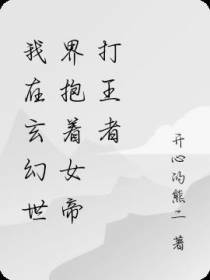 我在玄幻世
界抱着女帝
打王者
开心冯熊二 著